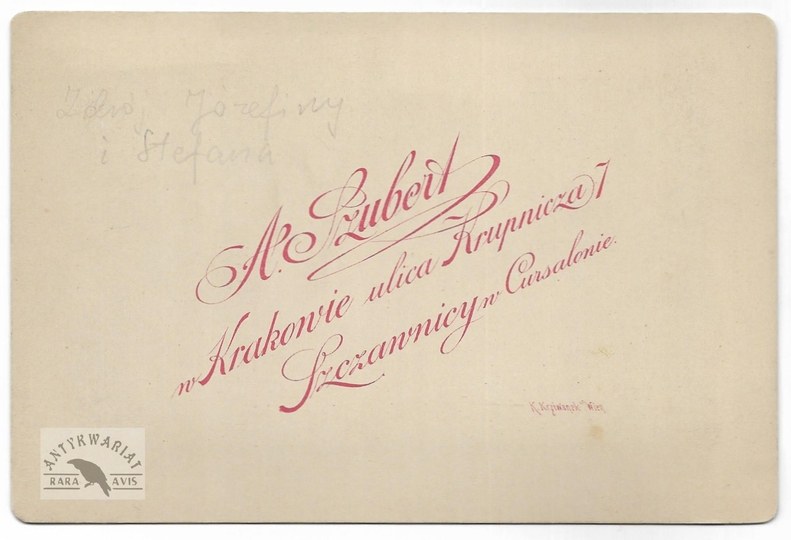 Józefiny
i Stefana
A. Szubert
w Krakowie ulica Krupnicza 7
Szczawnicy w Cursalonie.
Wien
ANTYKWARIAT
RARA AVIS